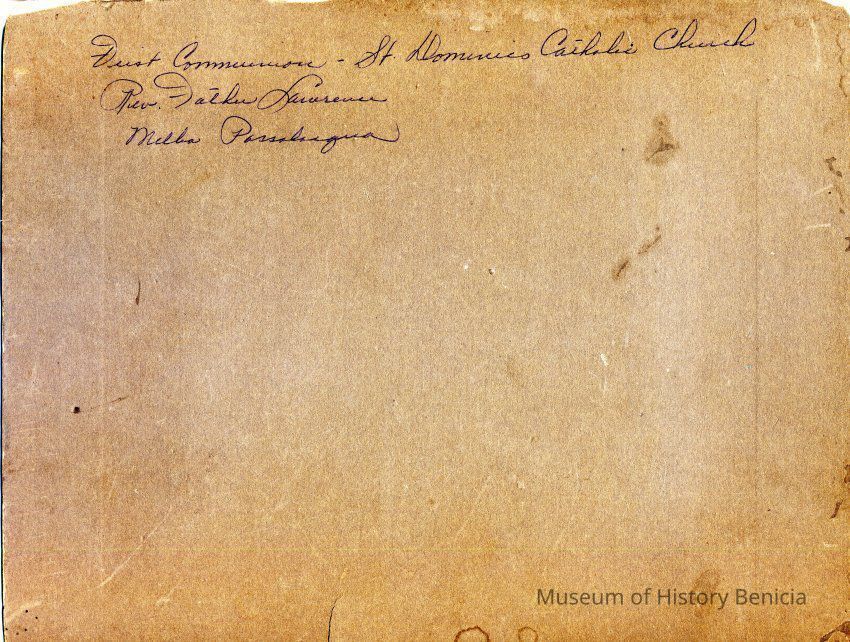 First Communion - St. Dominics Catholic Church
Rev. Father Lawrence
Melba Passalaqua
Museum of History Benicia